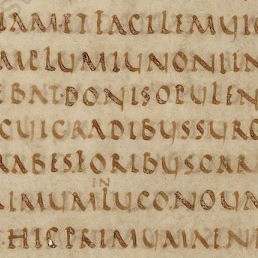 IAMETFACILEMUIC
MPLUMIUNONIIN
EBAT·DONISOPULEN
CUIGRADIBUSSURG
ABESFORIBUSCAR
IN
RIMUMLUCONOUA
·HICPRIMUMAENE